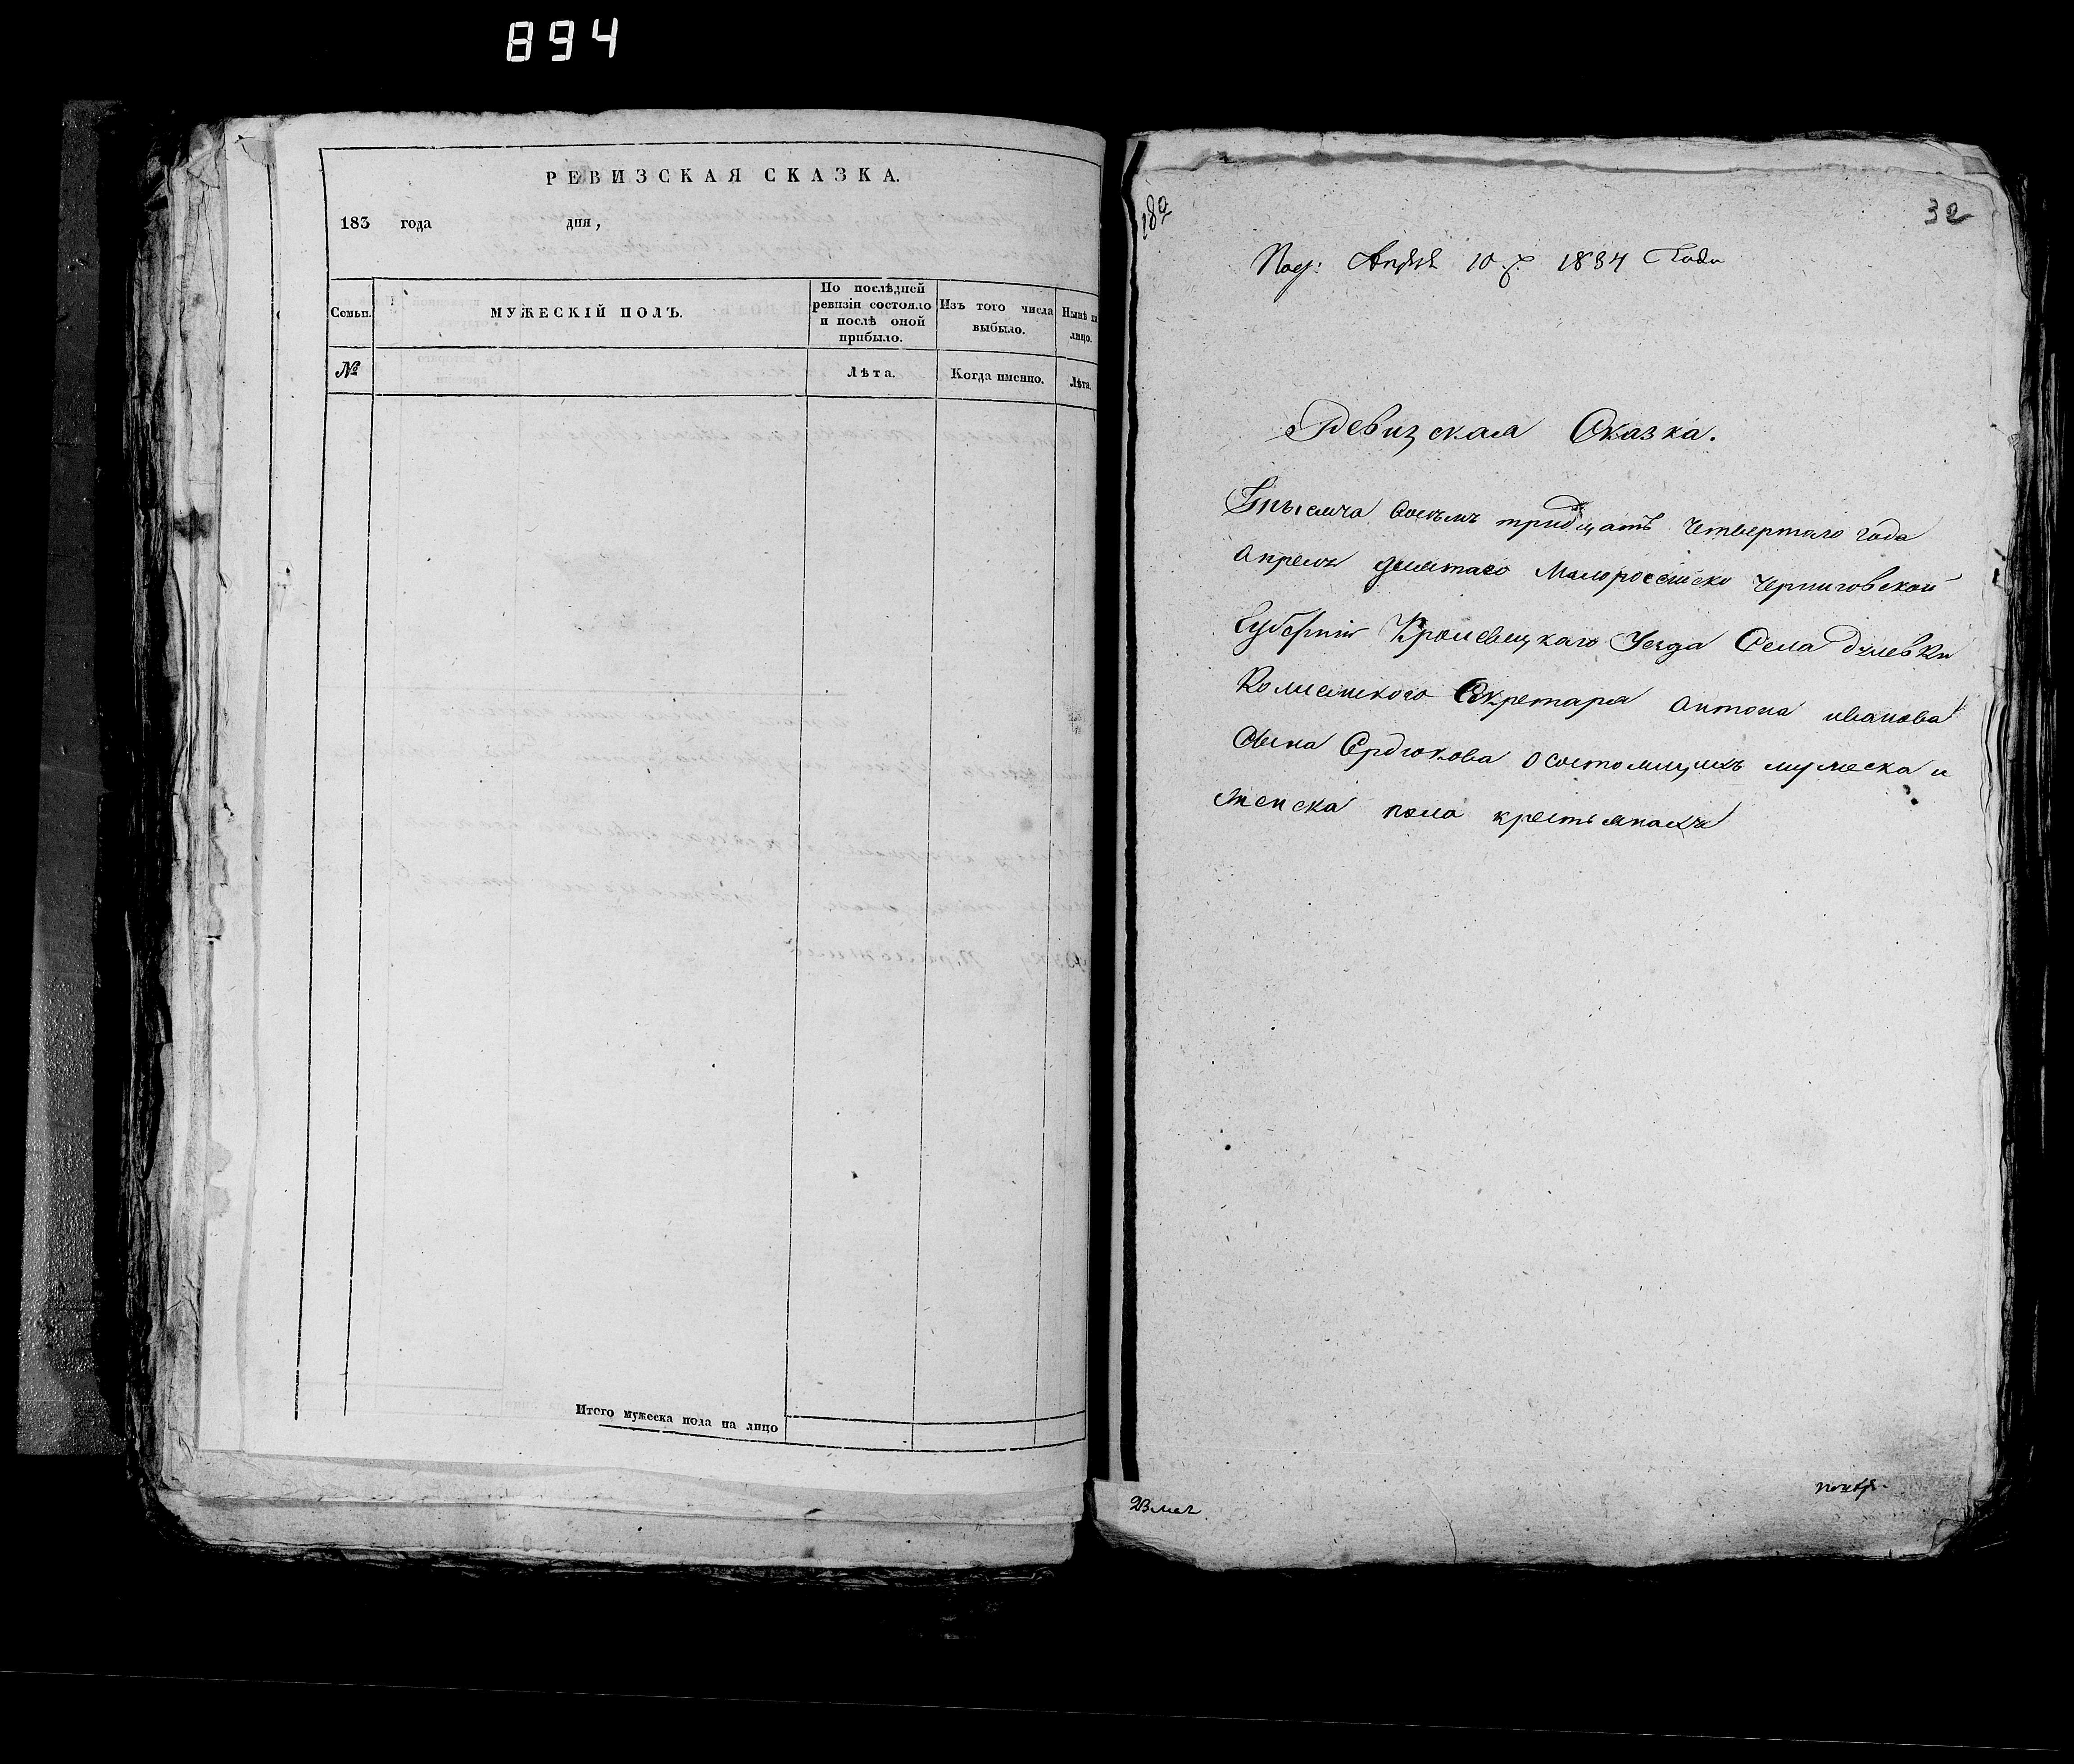 894
РЕВИЗСКАЯ СКАЗКА.
183 года дня,
Семьи. МУЖЕСКІЙ ПОЛЪ. По послѣдней ревизіи состояло и послѣ оной прибыло. Изъ того числа выбыло. Нынѣ на лицо.
№ Лѣта. Когда именно. Лѣта.
Итого мужеска пола на лицо
32
Апреля 10 1834 Года
Ревизская Сказка.
тысяча восемъ тридцатъ четвертаго года
апреля Малоросейско Черниговской
Губерніи Кролевецкаго Уезда Села
Колежского Секретаря антона иванова
Сына Сердюкова о состоящихъ мужеска и
женска пола крестьянахъ